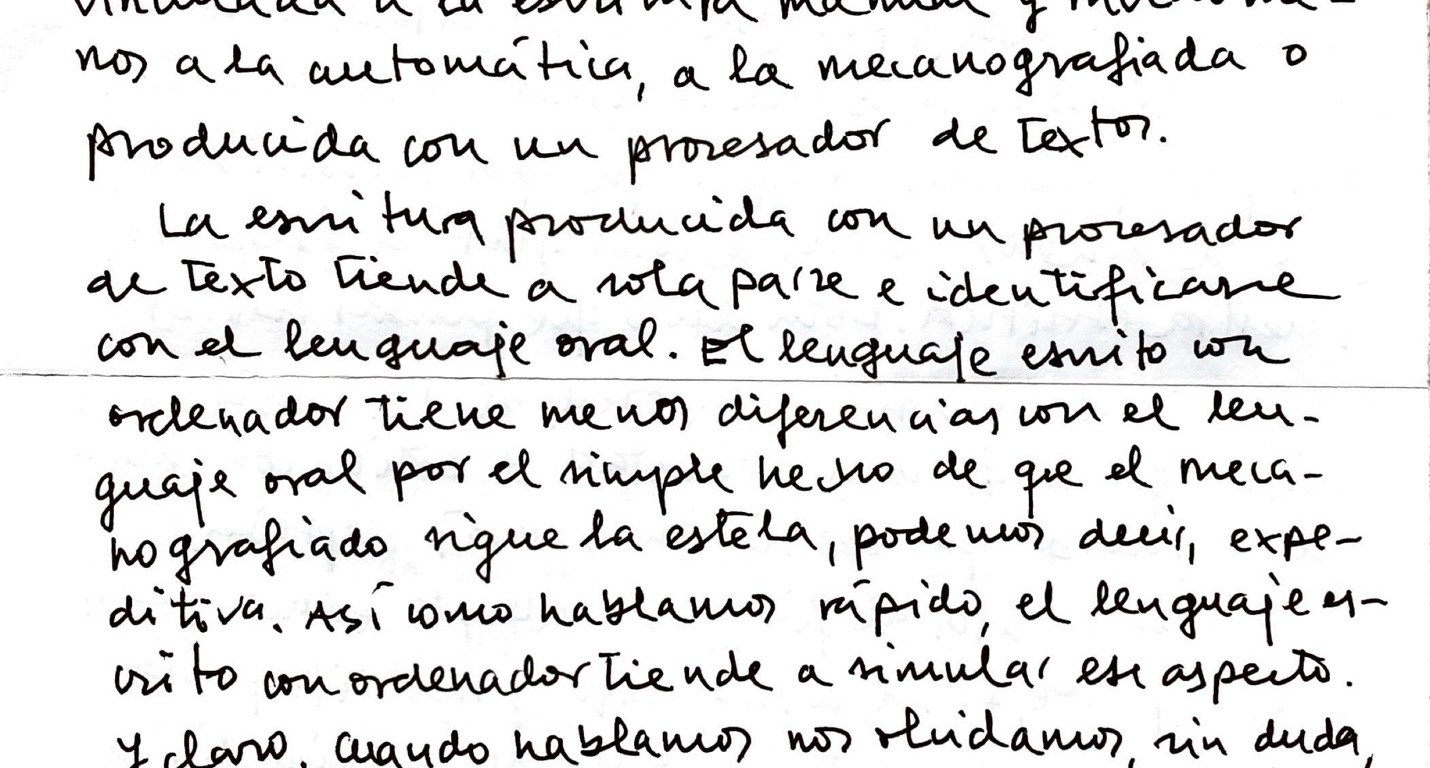 vinculada a la escritura manual y
nos a la automática, a la mecanografiada o
producida con un procesador de textos.
La escritura producida con un procesador
de texto tiende a solaparse e identificarse
con el lenguaje oral. El lenguaje escrito con
ordenador tiene menos diferencias con el len-
guaje oral por el simple hecho de que el meca-
nografiado sigue la estela, podemos decir, expe-
ditiva. Así como hablamos rápido, el lenguaje es-
crito con ordenador tiende a simular ese aspecto.
Y claro, cuando hablamos nos olvidamos, sin duda,